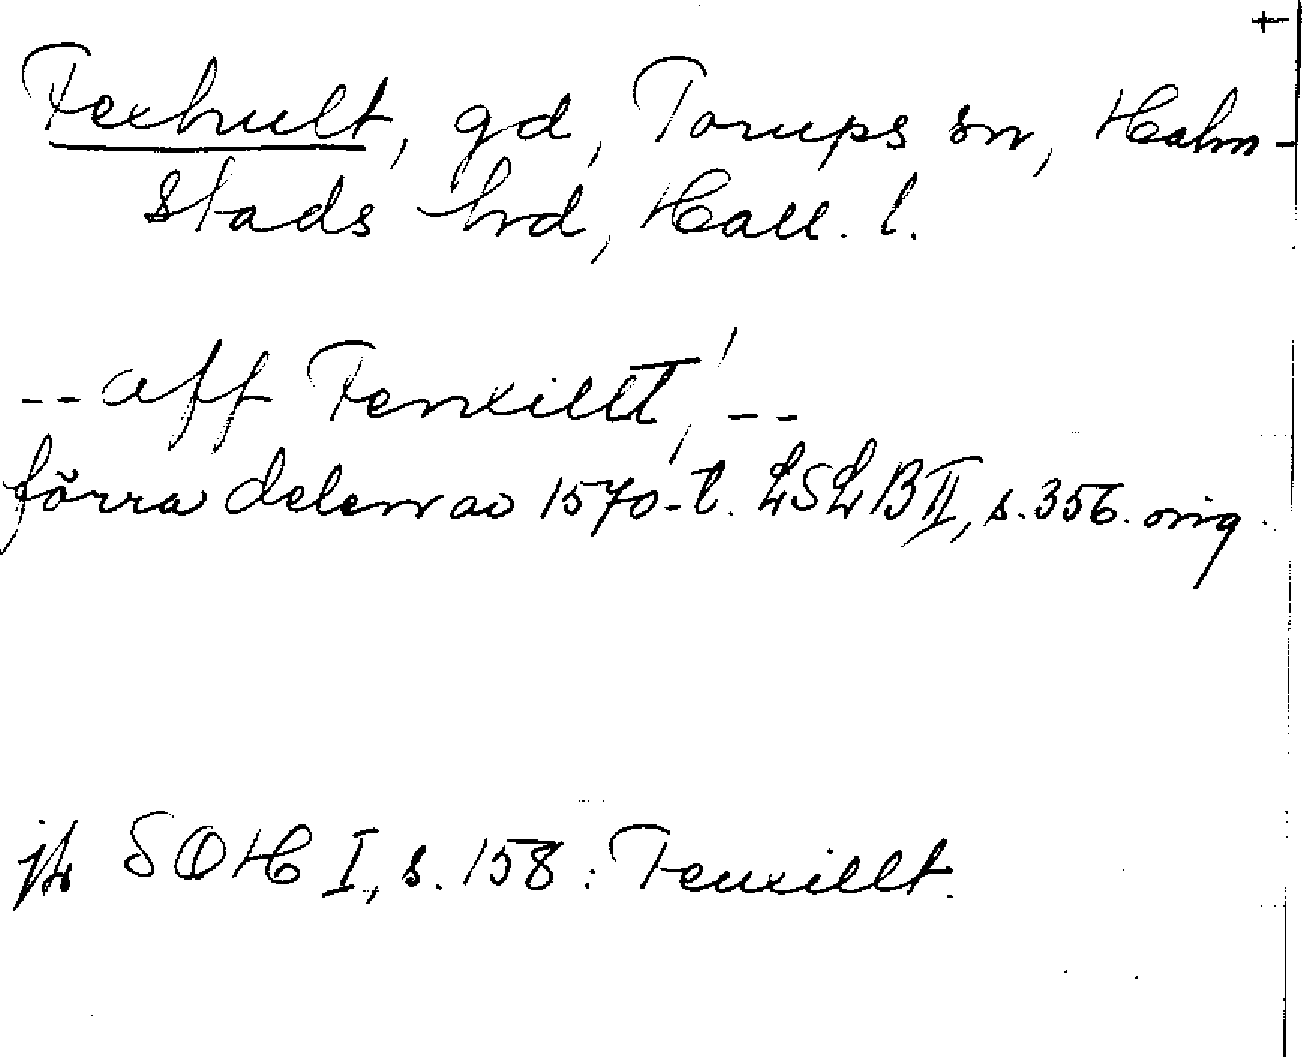 +
Fexhult, gd, Torups sn, Halm-
stads hrd, Hall. l.
-- aff Fenxillt, --
förra delen av 1570-t. LSLB II, s. 356. orig.
jfr SOH I, s. 158: Feuxillt.